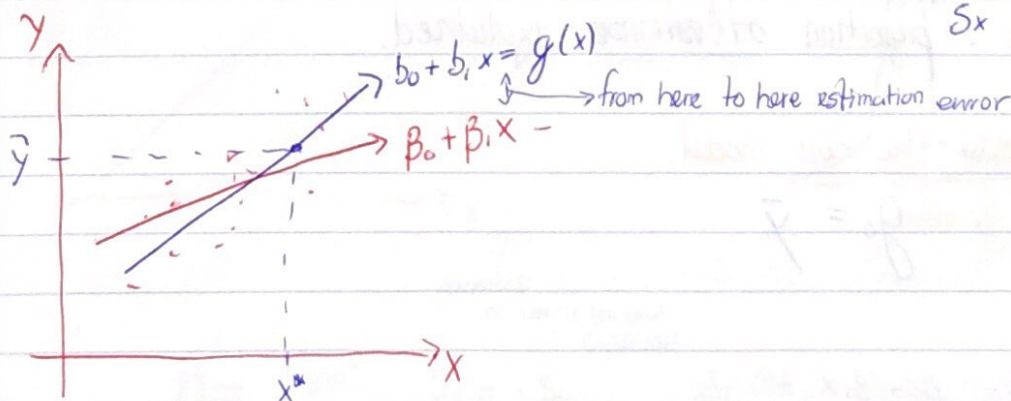 Sx
y
b₀ + b₁x = g(x)
from here to here estimation error
β₀ + β₁x –
ȳ
x
x*